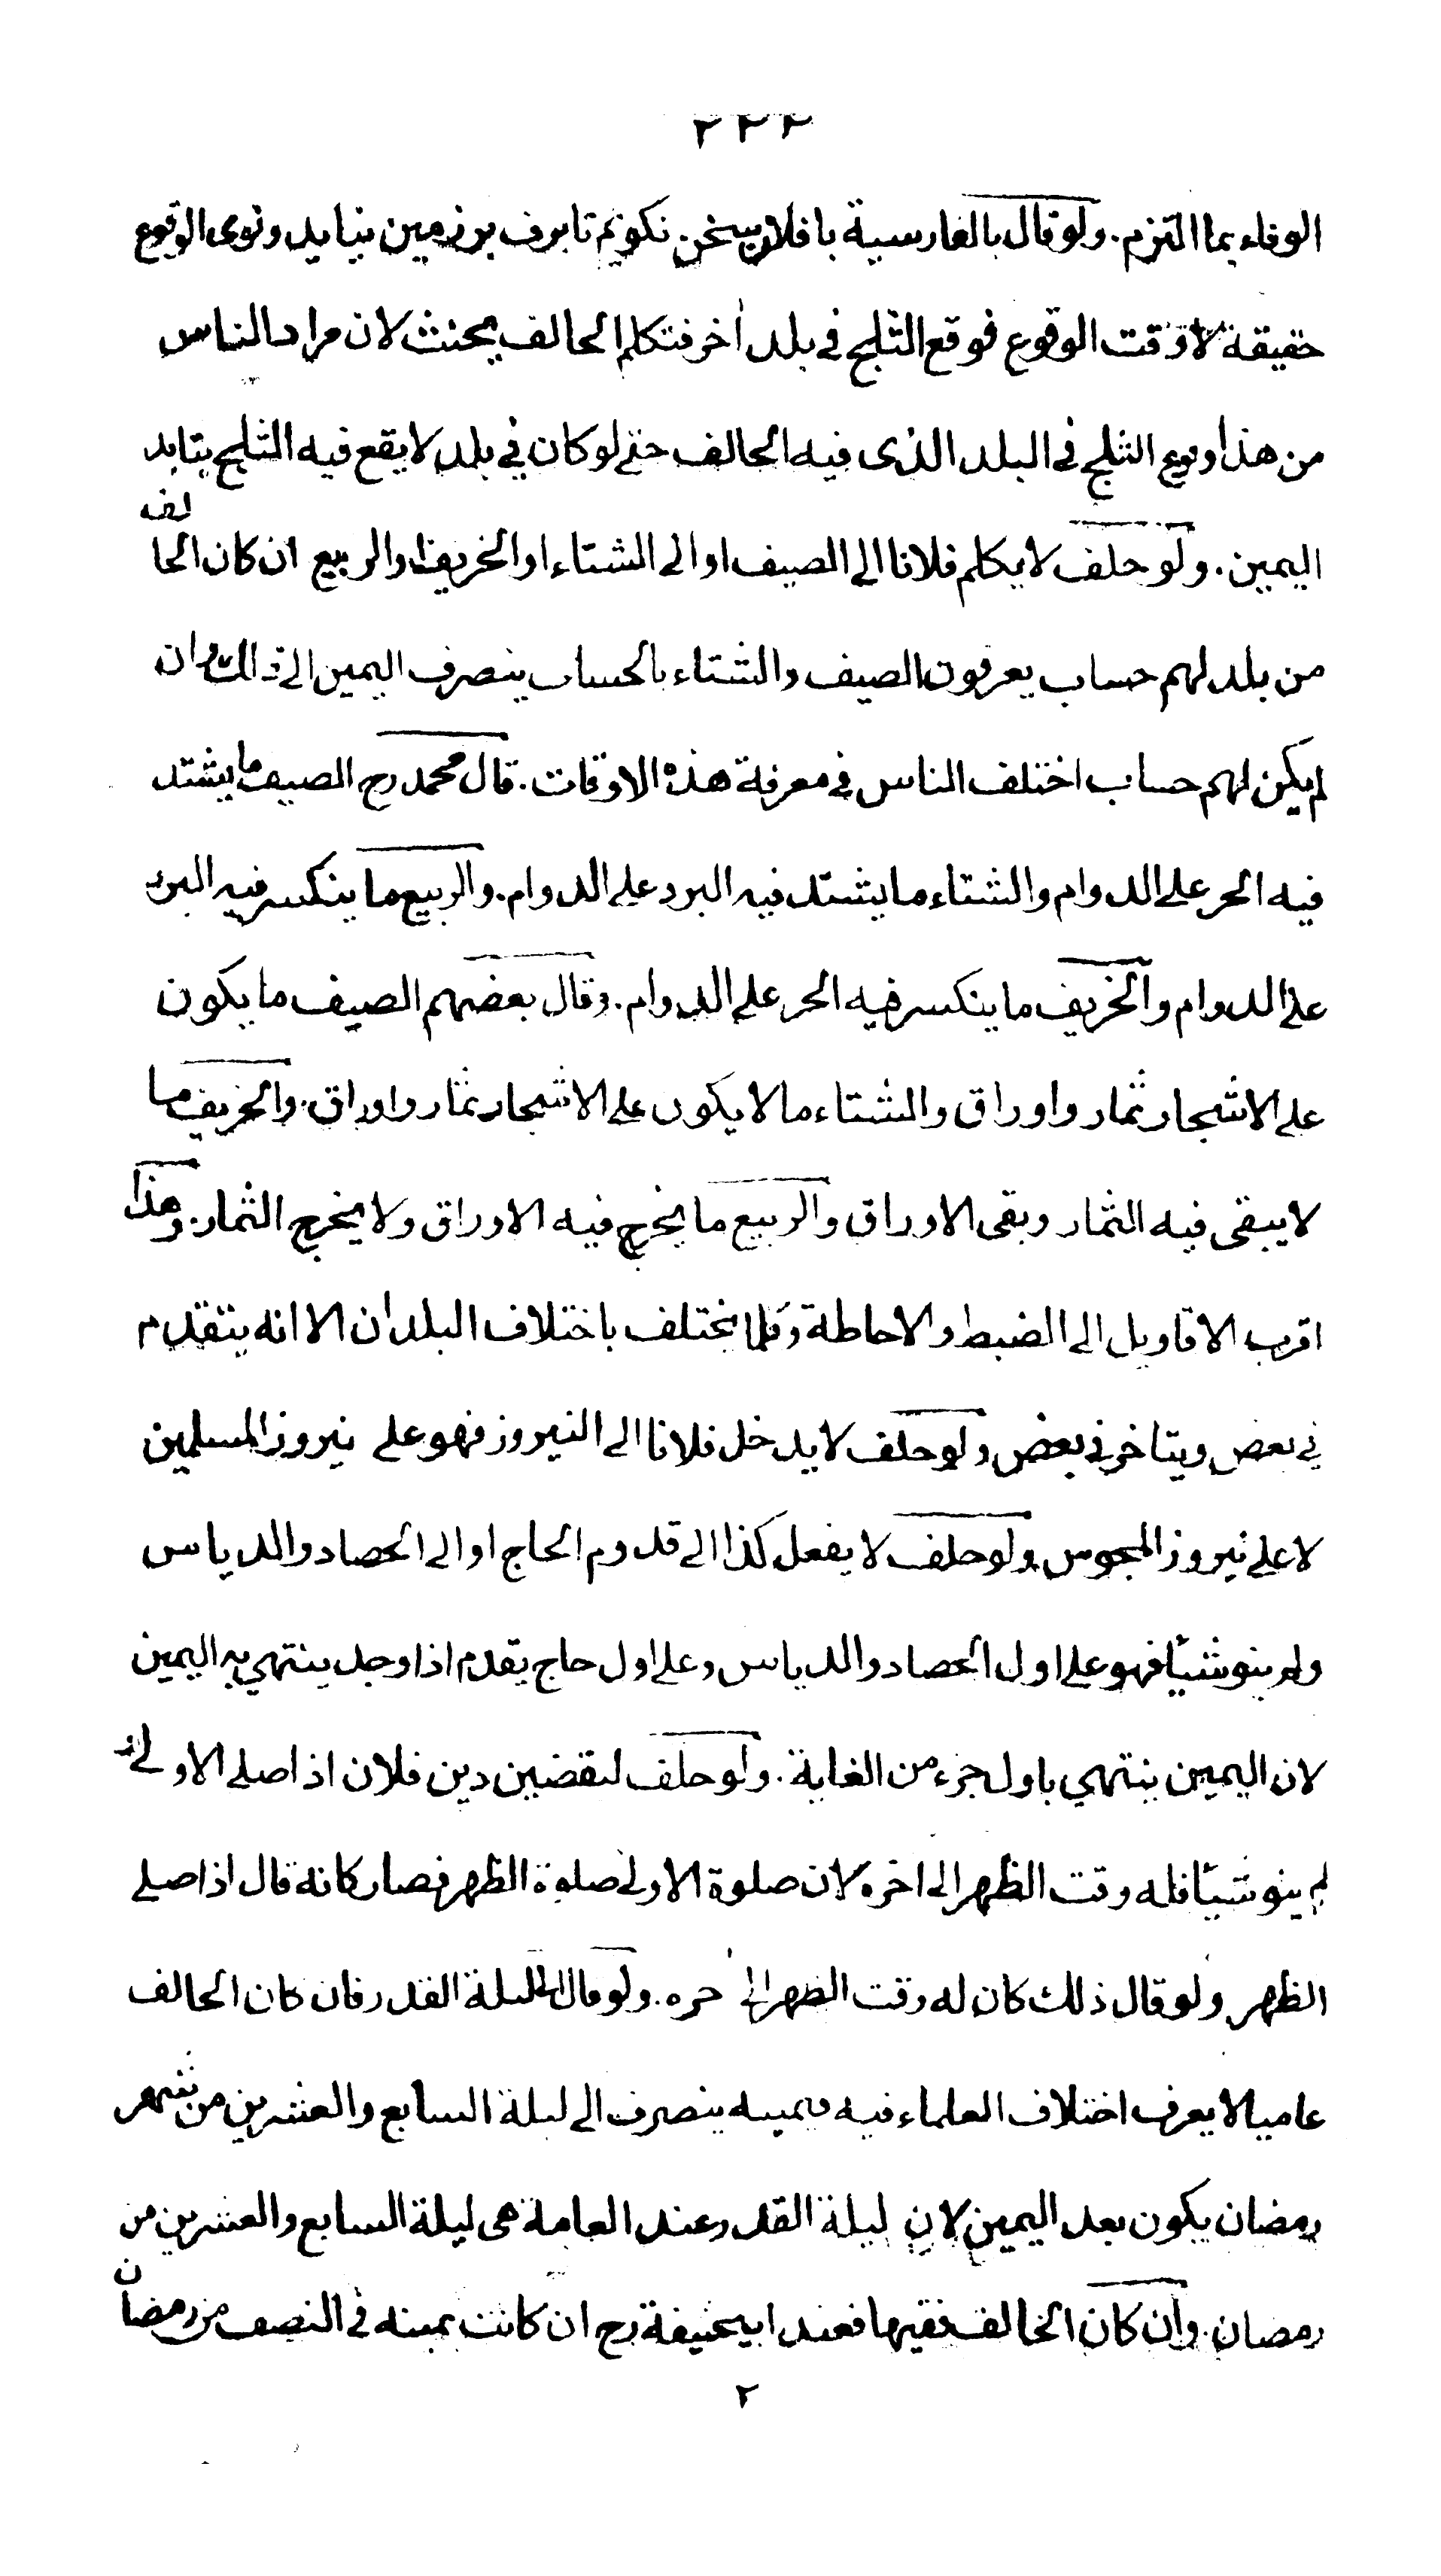 ٢٢٢
الوفاء بما التزم. ولو قال بالفارسية با فلان سخن نكونم تا برف بر زمين بيايد ونوى الوقوع
حقيقة لا وقت الوقوع فوقع الثلج في بلد اخر فتكلم الحالف يحنث لان مراد الناس
من هذا وقوع الثلج في البلد الذى فيه الحالف حتى لو كان في بلد لا يقع فيه الثلج يتابد
اليمين. ولو حلف لا يكلم فلانا الى الصيف او الى الشتاء او الخريف او الربيع ان كان الحالف
من بلد لهم حساب يعرفون الصيف والشتاء بالحساب ينصرف اليمين الى ذلك وان
لم يكن لهم حساب اختلف الناس في معرفة هذه الاوقات. قال محمد رح الصيف ما يشتد
فيه الحر على الدوام والشتاء ما يشتد فيه البرد على الدوام. والربيع ما ينكسر فيه البرد
على الدوام والخريف ما ينكسر فيه الحر على الدوام. وقال بعضهم الصيف ما يكون
على الاشجار ثمار واوراق والشتاء ما لا يكون على الاشجار ثمار واوراق. والخريف ما
لا يبقى فيه الثمار وبقى الاوراق والربيع ما يخرج فيه الاوراق ولا يخرج الثمار. وهذا
اقرب الاقاويل الى الضبط والاحاطة وقلما يختلف باختلاف البلدان الا انه يتقدم
في بعض ويتاخر في بعض ولو حلف لا يدخل فلانا الى النيروز فهو على نيروز المسلمين
لا على نيروز المجوس ولو حلف لا يفعل كذا الى قدوم الحاج او الى الحصاد والدياس
ولم ينو شيئا فهو على اول الحصاد والدياس وعلى اول حاج يقدم اذا وجد ينتهي به اليمين
لان اليمين ينتهي باول جزء من الغاية. ولو حلف ليقضين دين فلان اذا صلى الاولى و
لم ينو شيئا فله وقت الظهر الى اخره لان صلوة الاولى صلوة الظهر فصار كانه قال اذا صلى
الظهر ولو قال ذلك كان له وقت الظهر الى اخره. ولو قال الى ليلة القدر فان كان الحالف
عاميا لا يعرف اختلاف العلماء فيه فيمينه ينصرف الى ليلة السابع والعشرين من شهر
رمضان يكون بعد اليمين لان ليلة القدر عند العامة هى ليلة السابع والعشرين من
رمضان. وان كان الحالف فقيها فعند ابيحنيفة رح ان كانت يمينه في النصف من رمضان
٢